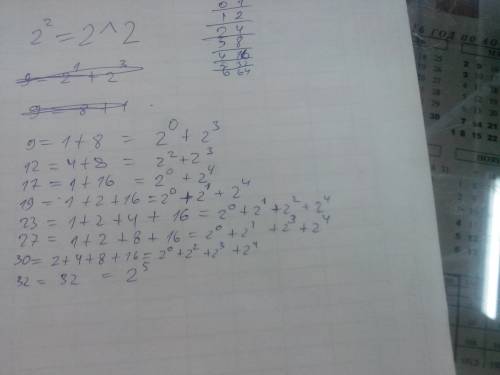 2² = 2^2
0 1
1 2
2 4
3 8
4 16
5 32
6 64
9 = 2¹ + 2³
9 = 8 + 1
9 = 1 + 8 = 2⁰ + 2³
12 = 4 + 8 = 2² + 2³
17 = 1 + 16 = 2⁰ + 2⁴
19 = 1 + 2 + 16 = 2⁰ + 2¹ + 2⁴
23 = 1 + 2 + 4 + 16 = 2⁰ + 2¹ + 2² + 2⁴
27 = 1 + 2 + 8 + 16 = 2⁰ + 2¹ + 2³ + 2⁴
30 = 2 + 4 + 8 + 16 = 2⁰ + 2² + 2³ + 2⁴
32 = 32 = 2⁵